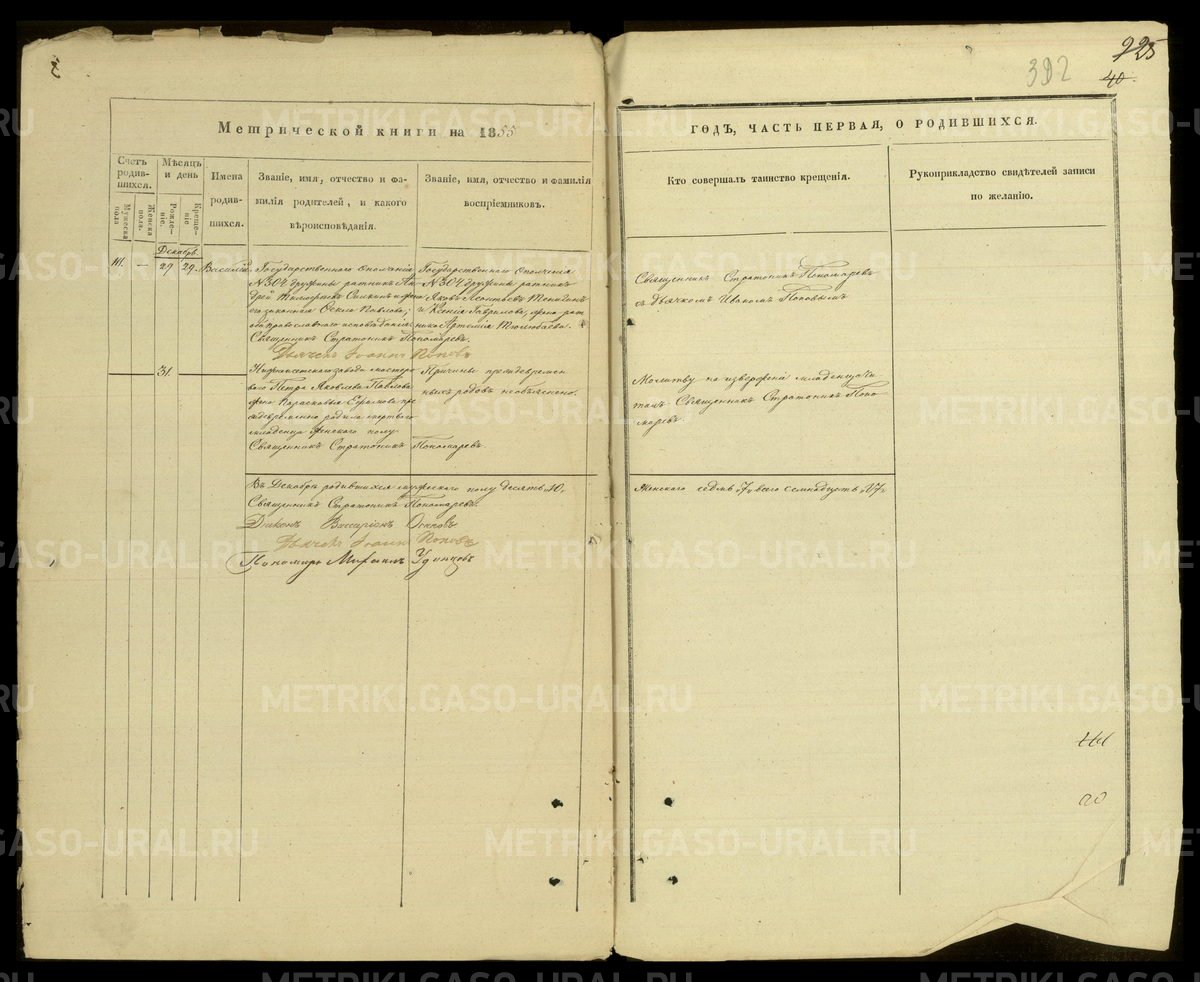 225
302
40.
Метрической книги на 1855
ГОДЪ, ЧАСТЬ ПЕРВАЯ, О РОДИВШИХСЯ.
Счетъ родив-шихся.
Мужеска пола
Женска пола.
Мѣсяцъ и день
Рожде-ніе.
Креще-ніе
Имена родив-шихся.
Званіе, имя, отчество и фа-
милія родителей, и какого
вѣроисповѣданія.
Званіе, имя, отчество и фамилія
воспріемниковъ.
Кто совершалъ таинство крещенія.
Рукоприкладство свидѣтелей записи
по желанію.
Декабрь.
111. — 29 29. Василій.
Государственнаго Ополченія
№304 дружины ратникъ Ан
дрей
законная Павлова;
оба православнаго исповѣданія.
Священникъ Стратоникъ Пономаревъ.
Дьячекъ Іоаннъ Поповъ
Государственнаго Ополченія
№304 дружины ратникъ
Яковъ Леонтьевъ
и Ксенія Гаврилова, жена рат
ника Артемія
Священникъ Стратоникъ Пономаревъ
съ дьячкомъ Иваномъ Поповымъ
31.
завода мастеро
ваго Петра Яковлева Павлова
жена Парасковья Ефимова пре
ждевременно родила мертваго
младенца женскаго полу
Священникъ Стратоникъ Пономаревъ.
Причины преждевремен
ныхъ родовъ необъяснено.
Молитву по изверженіи младенца чи
талъ Священникъ Стратоникъ Поно
маревъ.
Въ Декабрѣ родившихся мужескаго полу десять 10,
Женскаго семь 7, всего семнадцать 17
Священникъ Стратоникъ Пономаревъ.
Діаконъ Виссаріонъ Осиповъ
Дьячекъ Іоаннъ Поповъ
Пономарь Михаилъ Удинцовъ
20
METRIKI.GASO-URAL.RU